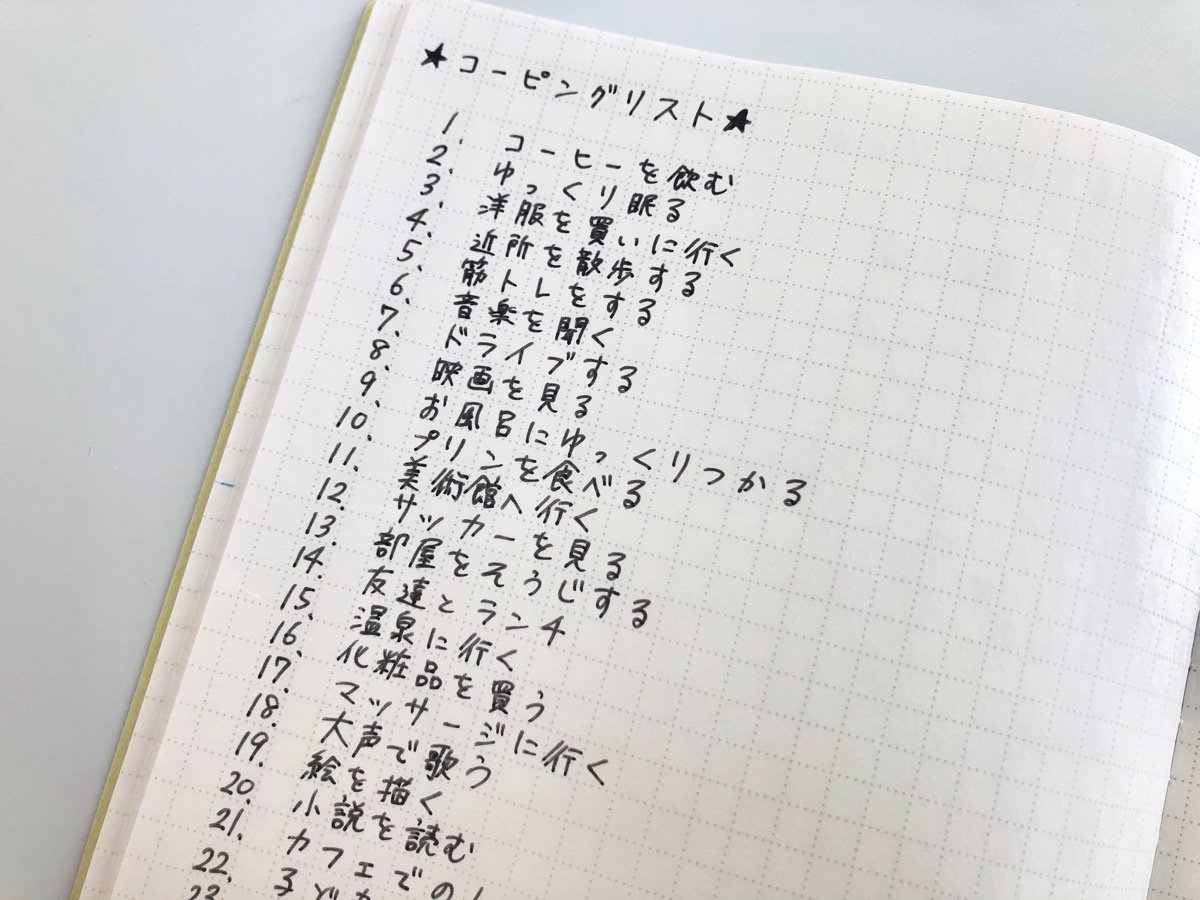 ★コーピングリスト★
1. コーヒーを飲む
2. ゆっくり眠る
3. 洋服を買いに行く
4. 近所を散歩する
5. 筋トレをする
6. 音楽を聞く
7. ドライブする
8. 映画を見る
9. お風呂にゆっくりつかる
10. プリンを食べる
11. 美術館へ行く
12. サッカーを見る
13. 部屋をそうじする
14. 友達とランチ
15. 温泉に行く
16. 化粧品を買う
17. マッサージに行く
18. 大声で歌う
19. 絵を描く
20. 小説を読む
21. カフェでの
22. 子ど
23.